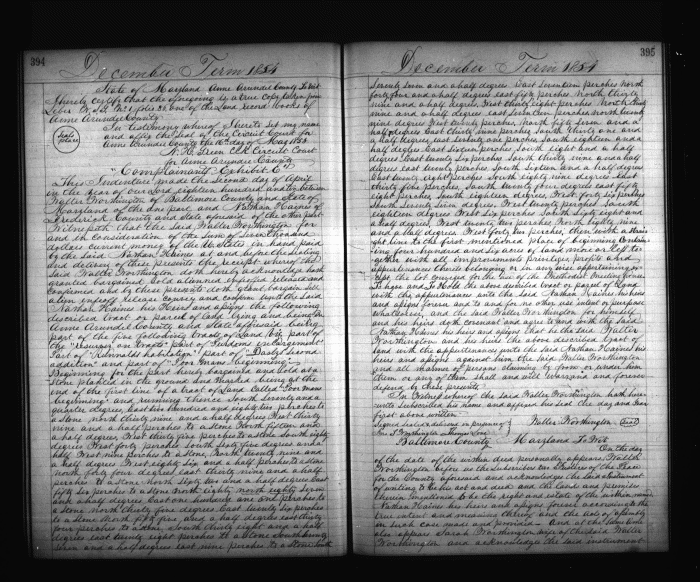 394
December Term 1854
State of Maryland Anne Arundel County To Wit
I hereby certify that the foregoing is a true copy taken from
Liber No. 51 one of the Land Record Books of
Anne Arundel County
In testimony whereof I hereto set my name
and affix the Seal of the Circuit Court for
Anne Arundel County the 10th day of May 1854
Seals place
N. H. Green Clk Circuit Court
for Anne Arundel County
"Complainants Exhibit C"
This Indenture made the second day of April
in the year of our Lord eighteen hundred and between
Walter Worthington of Baltimore County and State of
Maryland of the one part and Nathan Haines of
Frederick County and State aforesaid of the other part
Witnesseth that the said Walter Worthington for
and in consideration of the sum of Seven thousand
dollars current money of the U States in hand paid
by the said Nathan Haines at and before the sealing
and delivery of these presents the receipt whereof the
said Walter Worthington doth hereby acknowledge hath
granted bargained sold aliened enfeoffed released and
confirmed and by these presents doth grant bargain sell
alien enfeoff release convey and confirm unto the said
Nathan Haines his Heirs and assigns the following
described tract or parcel of land lying and being in
Anne Arundel County and State aforesaid being
part of the following Tracts of Land to wit part
of the "Resurvey on Wincopin" part of "Freedoms enlargement"
Part of "Reynolds habitation" part of "Dailys Second
addition" and part of "Poor Mans beginning"
Beginning for the part hereby bargained and sold at a
stone planted in the ground and marked being at the
end of the first line of a tract of land called "Poor mans
beginning" and running thence South seventy and a
quarter degrees, East two hundred and eighty two perches to
a stone north thirty nine and a half degrees West thirty
nine and a half perches to a stone North fifteen and
a half degrees West thirty five perches to a stone South eighty
six degrees West perches to a stone South seven and a
half West nine perches to a stone, North twenty nine and a
half degrees West eight six and a half perches to a stone
north forty four degrees east thirty nine and a half
perches to a stone north sixty two and a half degrees East
fifty six perches to a stone North eighty north eighty seven
and a half degrees East one hundred and one perches to
a stone north thirty four degrees East twenty six perches
to a stone North fifty five and a half degrees east thirty
four perches to a stone South thirty eight degrees and a half
degrees east twenty eight perches to a stone South seventy
seven and a half degrees east nine perches to a stone South
395
December Term 1854
seventy seven and a half degrees East seventeen perches North
forty four and a half degrees east fifty perches North thirty
nine and a half degrees West thirty eight perches North thirty
nine and a half degrees East seventeen perches north twenty
nine degrees West perches North fifty seven and a
half degrees East thirty nine perches South thirty one and
a half degrees, East seventy one perches South eighteen and a
half degrees East perches, South eight and a half
degrees East twenty six perches South thirty nine and a half
degrees east perches South sixteen and a half degrees
East twenty eight perches South eighty nine degrees east
thirty five perches, South twenty four degrees east fifty
eight perches South degrees West forty six perches
South seventy seven degrees West twenty perches South
eighteen degrees West six perches South sixty eight and
a half degrees West twenty two perches North eighty nine
and a half degrees West forty two perches, then with a straight
line to the first mentioned place of beginning Containing
four hundred and six acres of land more or less to
gether with all improvements privileges profits and
appurtenances thereto belonging or in any wise appertaining except
the lot conveyed for the use of the Methodist Meeting House
To have and To Hold the above described tract or parcel of Land
with the appurtenances unto the said Nathan Haines his heirs
and assigns forever and to and for no other use intent or purpose
whatsoever, and the said Walter Worthington for himself
and his heirs doth covenant and agree to and with the said
Nathan Haines his heirs and assigns that he the said Walter
Worthington and his heirs the above described tract of
land with the appurtenances unto the said Nathan Haines his
heirs and assigns against him the said Walter Worthington
and all manner of persons claiming by from or under him
them or any of them shall and will warrant and forever
defend by these presents
In Witness whereof the said Walter Worthington hath here
unto subscribed his name and affixed his seal the day and year
first above written
Signed Sealed & delivered in presence of
Walter Worthington Seal
Baltimore County Maryland To Wit
On the day
of the date of the within deed personally appears Walter
Worthington before us the subscribers two Justices of the Peace
for the County aforesaid and acknowledges the said Instrument
of writing to be his act and deed and the lands and premises
therein mentioned to be the right and estate of the within named
Nathan Haines his heirs and assigns forever according to the
true intent and meaning thereof and the acts of assembly
in such case made and provided — And at the same time
also appears Sarah Worthington wife of the said Walter
Worthington and acknowledges the said instrument